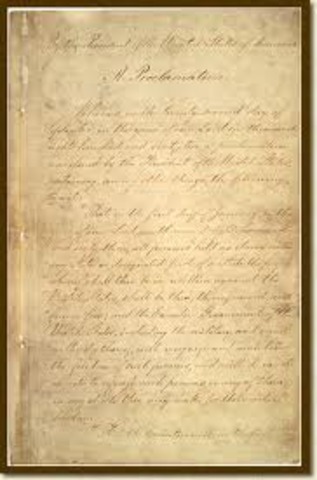 By the President of the United States of America
A Proclamation.
Whereas, on the twenty second day of
September, in the year of our Lord one thousand
eight hundred and sixty two, a proclamation
was issued by the President of the United States,
containing, among other things, the following,
to wit:
"That on the first day of January, in the
year of our Lord one thousand eight hundred
and sixty-three, all persons held as slaves within
any State or designated part of a State, the people
whereof shall then be in rebellion against the
United States, shall be then, thenceforward, and
forever free; and the Executive Government of the
United States, including the military and naval
authority thereof, will recognize and maintain
the freedom of such persons, and will do no act
or acts to repress such persons, or any of them,
in any efforts they may make for their actual
freedom.